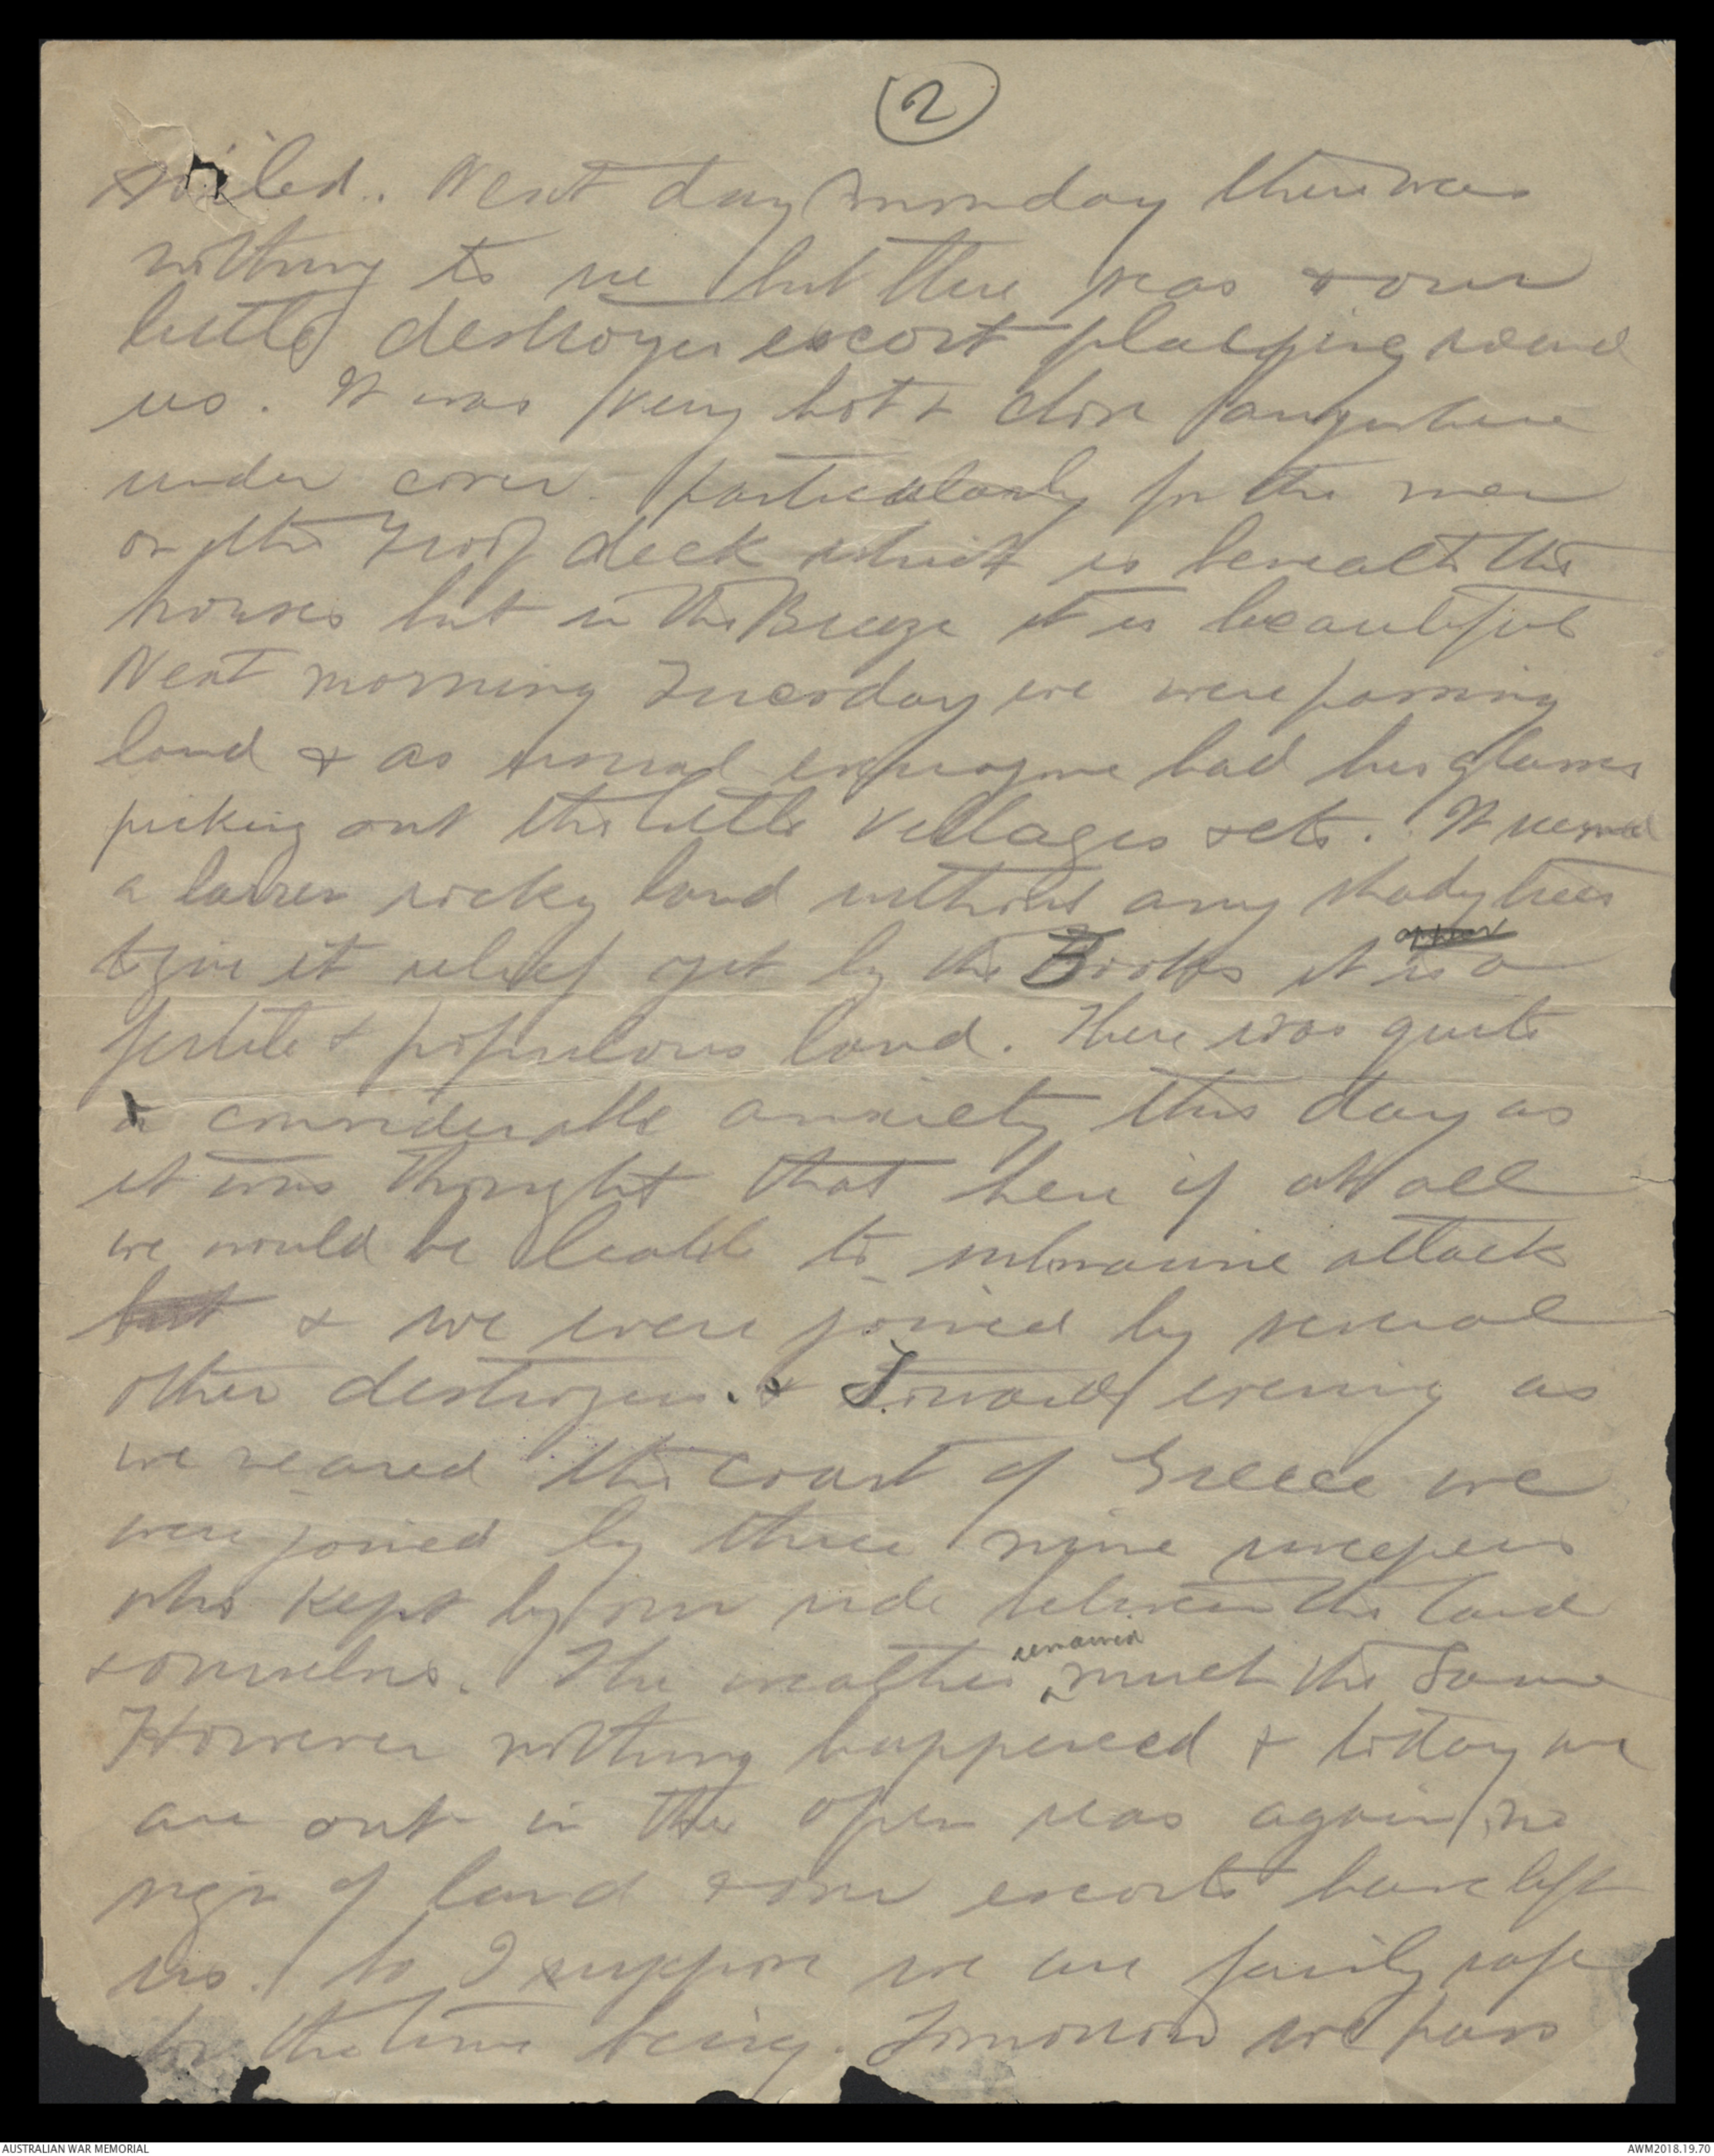 2
sailed. Next day Monday there was
nothing to see but the seas & our
little destroyer escort playing round
us. It was very hot & close anywhere
under cover particularly for the men
on the Troop deck which is beneath the
horses but in the Breeze it is beautiful
Next morning Tuesday we were passing
land & as usual everyone had his glasses
picking out the little villages &etc. It seemed
a barren rocky land without any shady trees
to give it relief yet by the Books it is a
fertile & populous land. There was quite
a considerable anxiety this day as
it was thought that here if at all
we would be liable to submarine attack
but & we were joined by several
other destroyers. & Toward evening as
we neared the coast of Greece we
were joined by three mine sweepers
who kept by our side between the land
& ourselves. The weather remained much the same
However nothing happened & today we
are out in the open seas again, no
sign of land & our escorts have left
us. So I suppose we are fairly safe
for the time being. Tomorrow we pass
AUSTRALIAN WAR MEMORIAL
AWM2018.19.70